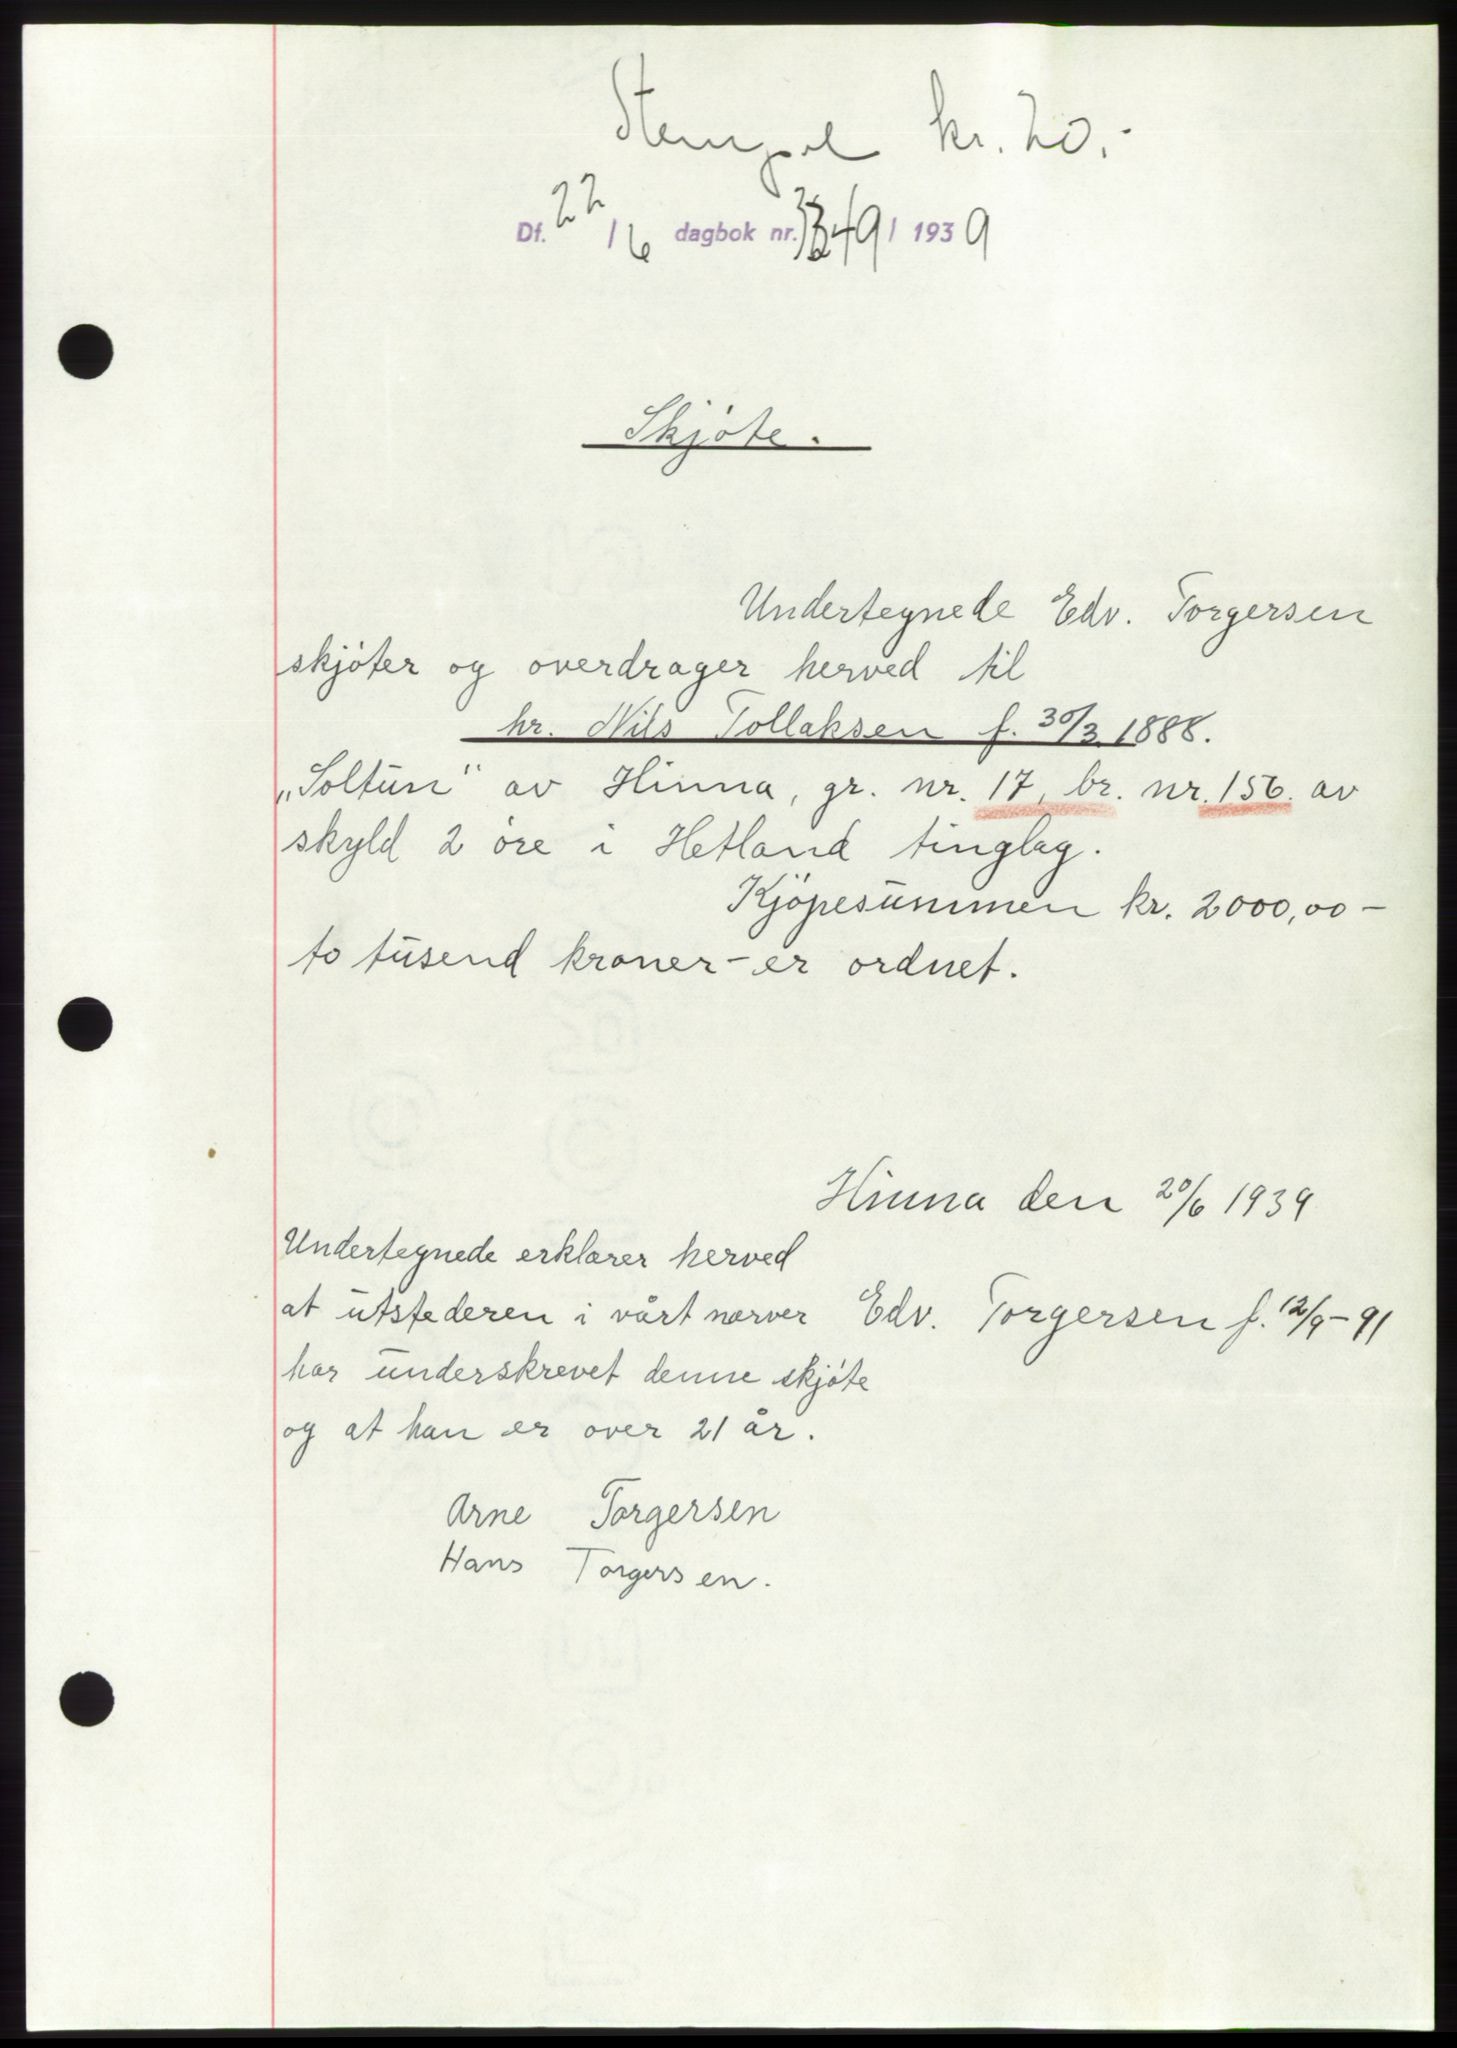 Stempel kr. 20.-
Df. 22/6 dagbok nr. 3349/1939
Skjöte.
Undertegnede Edv. Torgersen
skjöter og overdrager herved til
hr. Nils Tollaksen f. 30/3 1888.
„Soltun“ av Hinna, gr. nr. 17, br. nr. 156. av
skyld 2 öre i Hetland tinglag.
Kjöpesummen kr. 2000,00 –
to tusend kroner – er ordnet.
Hinna den 20/6 1939
Undertegnede erklærer herved
at utstederen i vårt nærver Edv. Torgersen f. 12/9 – 91
har underskrevet denne skjöte
og at han er over 21 år.
Arne Torgersen
Hans Torgersen.